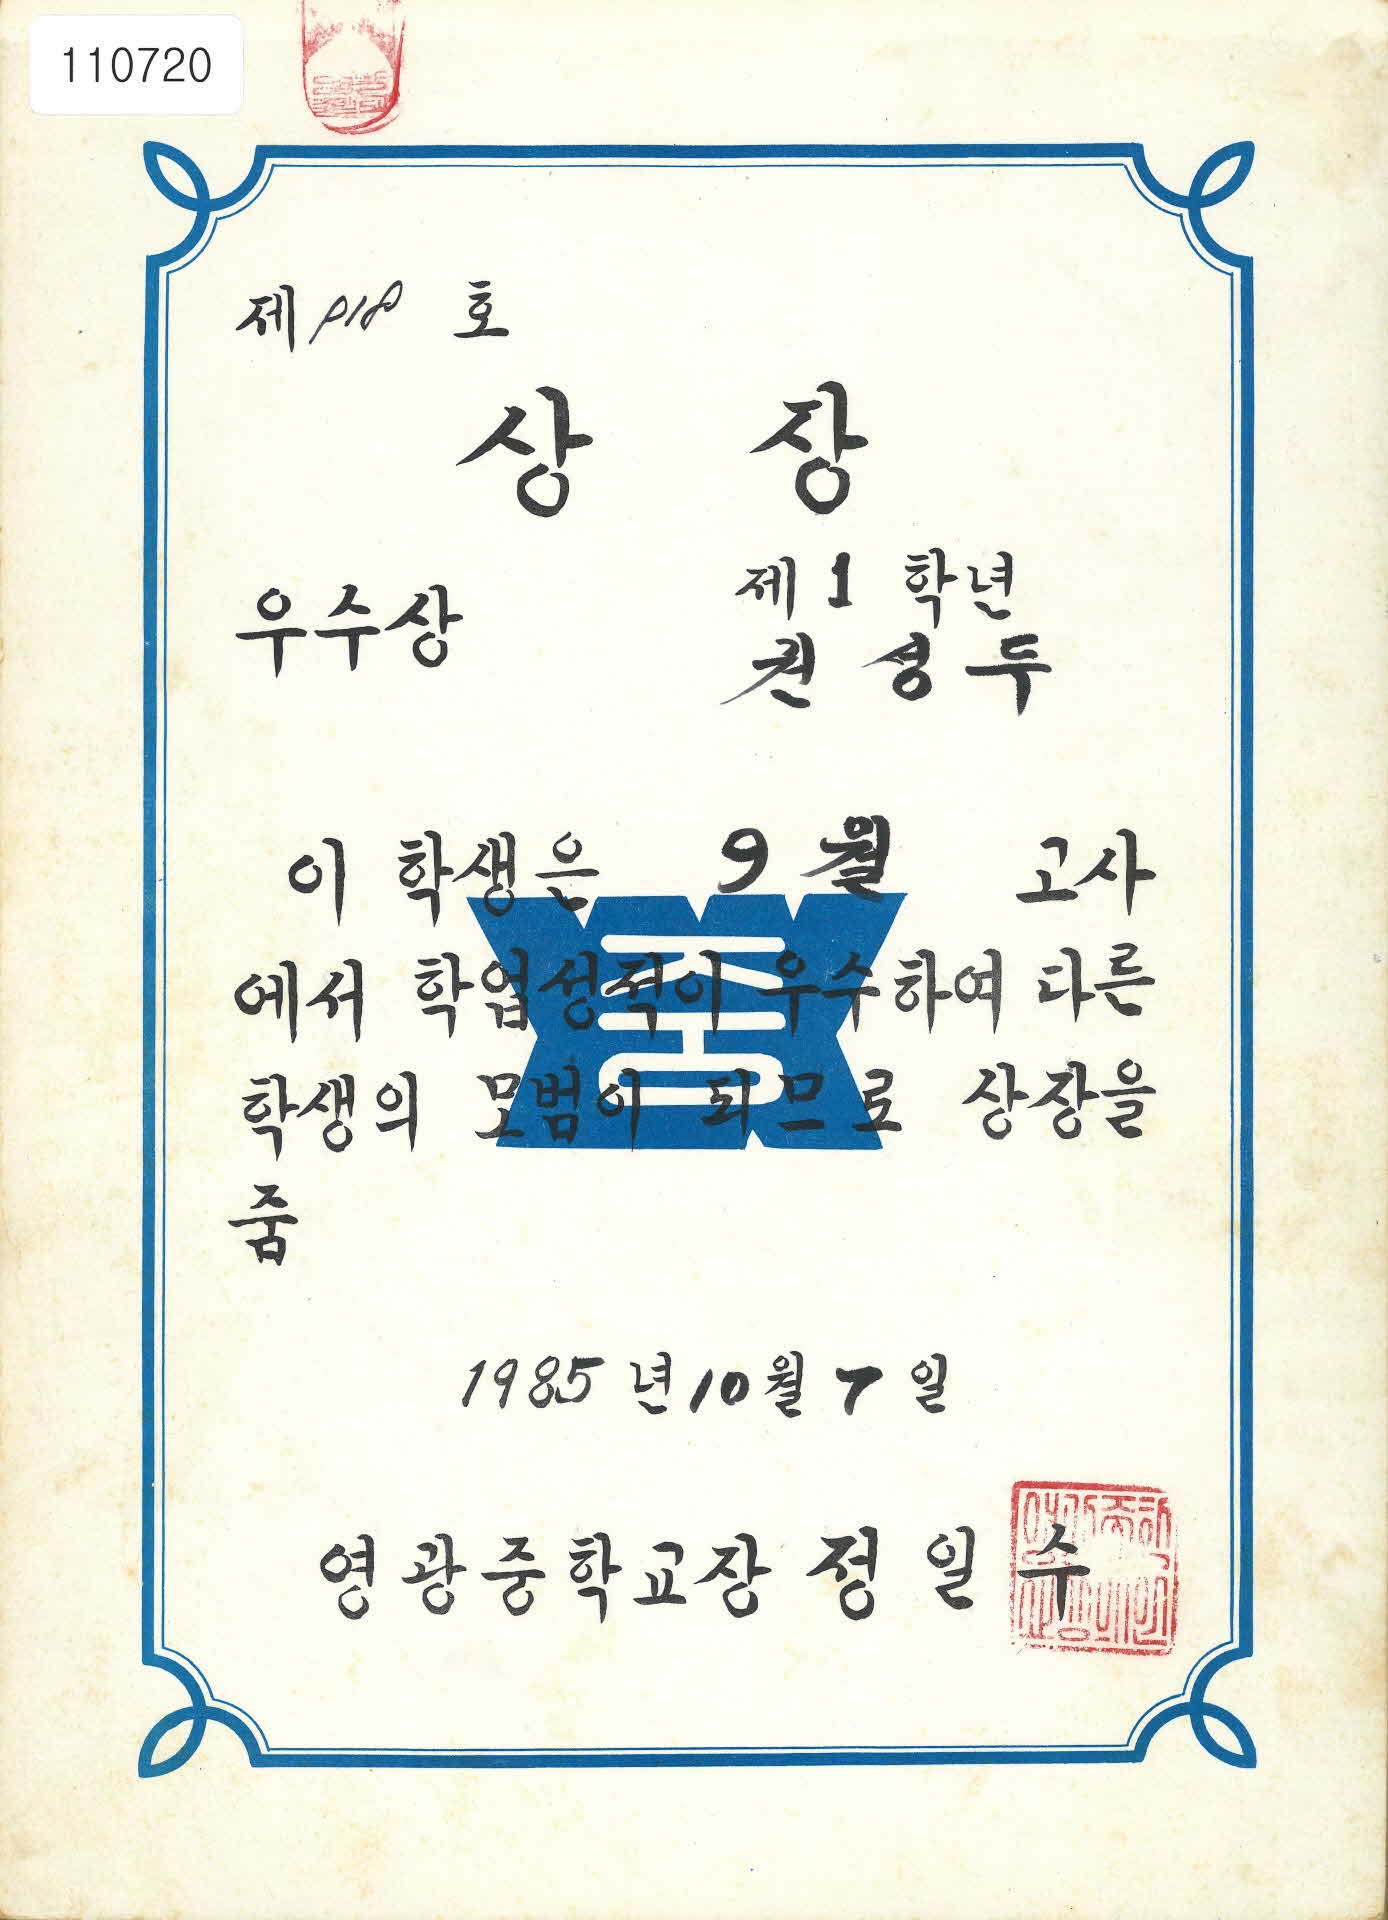 110720
제 918 호
상 장
우수상
제 1 학년
권 성 두
이 학생은 9월 고사
에서 학업성적이 우수하여 다른
학생의 모범이 되므로 상장을
줌
1985 년 10 월 7 일
영광중학교장 정 일 수
중
영광중학
교장의인